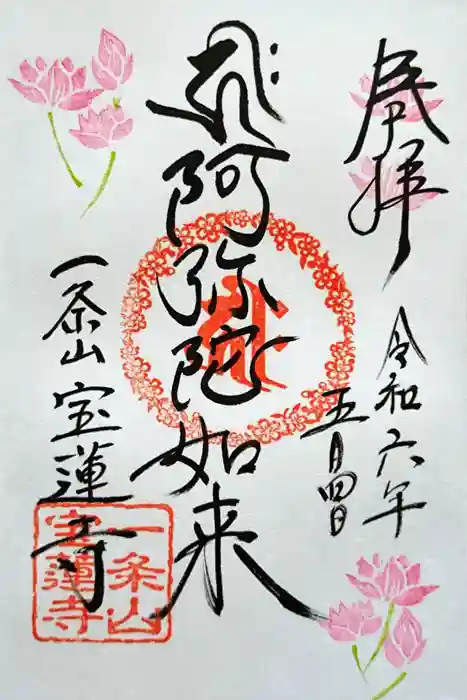 奉拝
令和六年
五月四日
阿弥陀如来
一条山 宝蓮寺
一条山
宝蓮寺